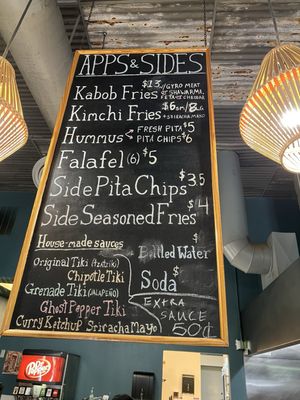 APPS & SIDES
Kabob Fries $13 w/ GYRO MEAT
or SHAWARMA,
FETA or CHEDDAR
Kimchi Fries $6 sm/8 LG
+ SRIRACHA MAYO
Hummus FRESH PITA $5
PITA CHIPS $6
Falafel (6) $5
Side Pita Chips $3.5
Side Seasoned Fries $4
House-made sauces
Original Tiki (Tzatziki)
Chipotle Tiki
Grenade Tiki (JALAPEÑO)
Ghost Pepper Tiki
Curry Ketchup Sriracha Mayo
$
Bottled Water
Soda $
EXTRA
SAUCE
50¢
Dr Pepper